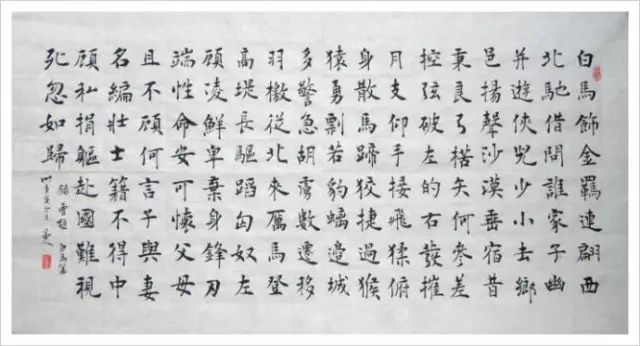 白馬飾金羈連翩西
北馳借問誰家子幽
并遊俠兒少小去鄉
邑揚聲沙漠垂宿昔
秉良弓楛矢何參差
控弦破左的右發摧
月支仰手接飛猱俯
身散馬蹄狡捷過猴
猿勇剽若豹螭邊城
多警急胡虜數遷移
羽檄從北來厲馬登
高堤長驅蹈匈奴左
顧凌鮮卑棄身鋒刃
端性命安可懷父母
且不顧何言子與妻
名編壯士籍不得中
顧私捐軀赴國難視
死忽如歸
錄曹植白馬篇